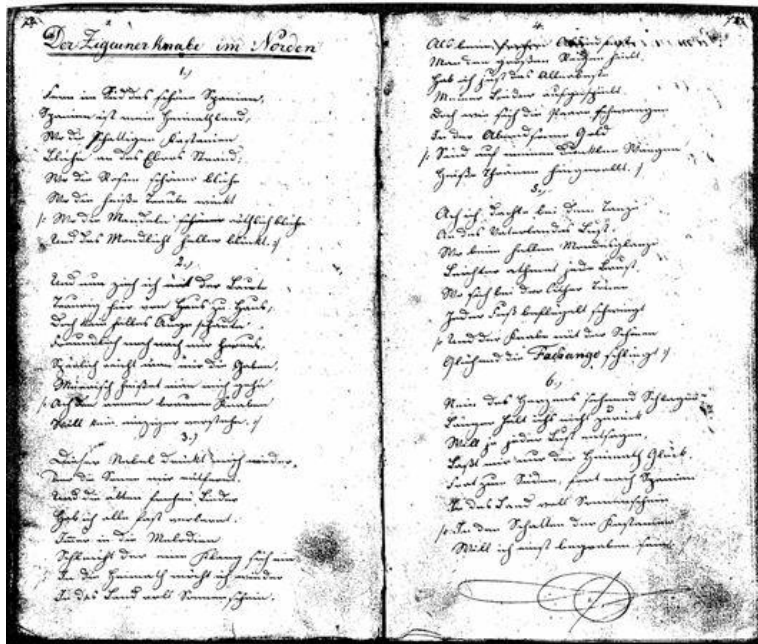 Der Zigeunerknabe im Norden
1.)
Fern im Süd das schöne Spanien,
Spanien ist mein Heimathland,
Wo die schattigen Kastanien
Blühn an des Ebros Strand,
Wo die Rosen schöner blühn
Wo die heiße Traube winkt
/: Wo die Mandeln röthlich blühn
Und das Mondlicht heller blinkt. :/
2.)
Und nun zieh ich mit der Laute
Traurig hier von Haus zu Haus,
Doch kein helles Auge schaute
Freundlich noch nach mir heraus.
Spärlich reicht man mir die Gaben,
Mürrisch heißet man mich gehn
/: Ach den armen braunen Knaben
Will kein einziger verstehn. :/
3.)
Dieser Nebel drückt mich nieder,
die Sonne mir entfernt.
Und die alten Lieder
Hab ich alle fast verlernt.
Immer in die Melodien
Schleicht der eine Klang sich ein
/: In die Heimath möcht ich wieder
In das Land voll Sonnenschein.
4.
Als beim
Man den großen Reigen hielt.
Hab ich jüst das Allerbeste
Meiner Lieder aufgespielt.
Doch wie sich die Paare schwangen
In der Abendsonne Gold
/: Sind auf meine dunklen Wangen
Heiße Thränen hingerollt. :/
5.)
Ach ich dachte bei dem Tanze
An des Vaterlandes Lust,
Wo beim hellen Mondenglanze
Leichter athmet jede Brust,
Wo sich bei der Cither Tönen
Jeder Fuß beflügelt schwingt
/: Und der Knabe mit der Schönen
Glühend die schlingt :/
6.)
Nein des Herzens sehnend Schlagen
Länger halt ichs nicht zurück
Will ja jeder Lust entsagen,
Laßt mir nur der Heimath Glück.
Fort zum Süden, fort nach Spanien
In das Land voll Sonnenschein
/: In den Schatten der Kastanien
Will ich einst begraben sein.